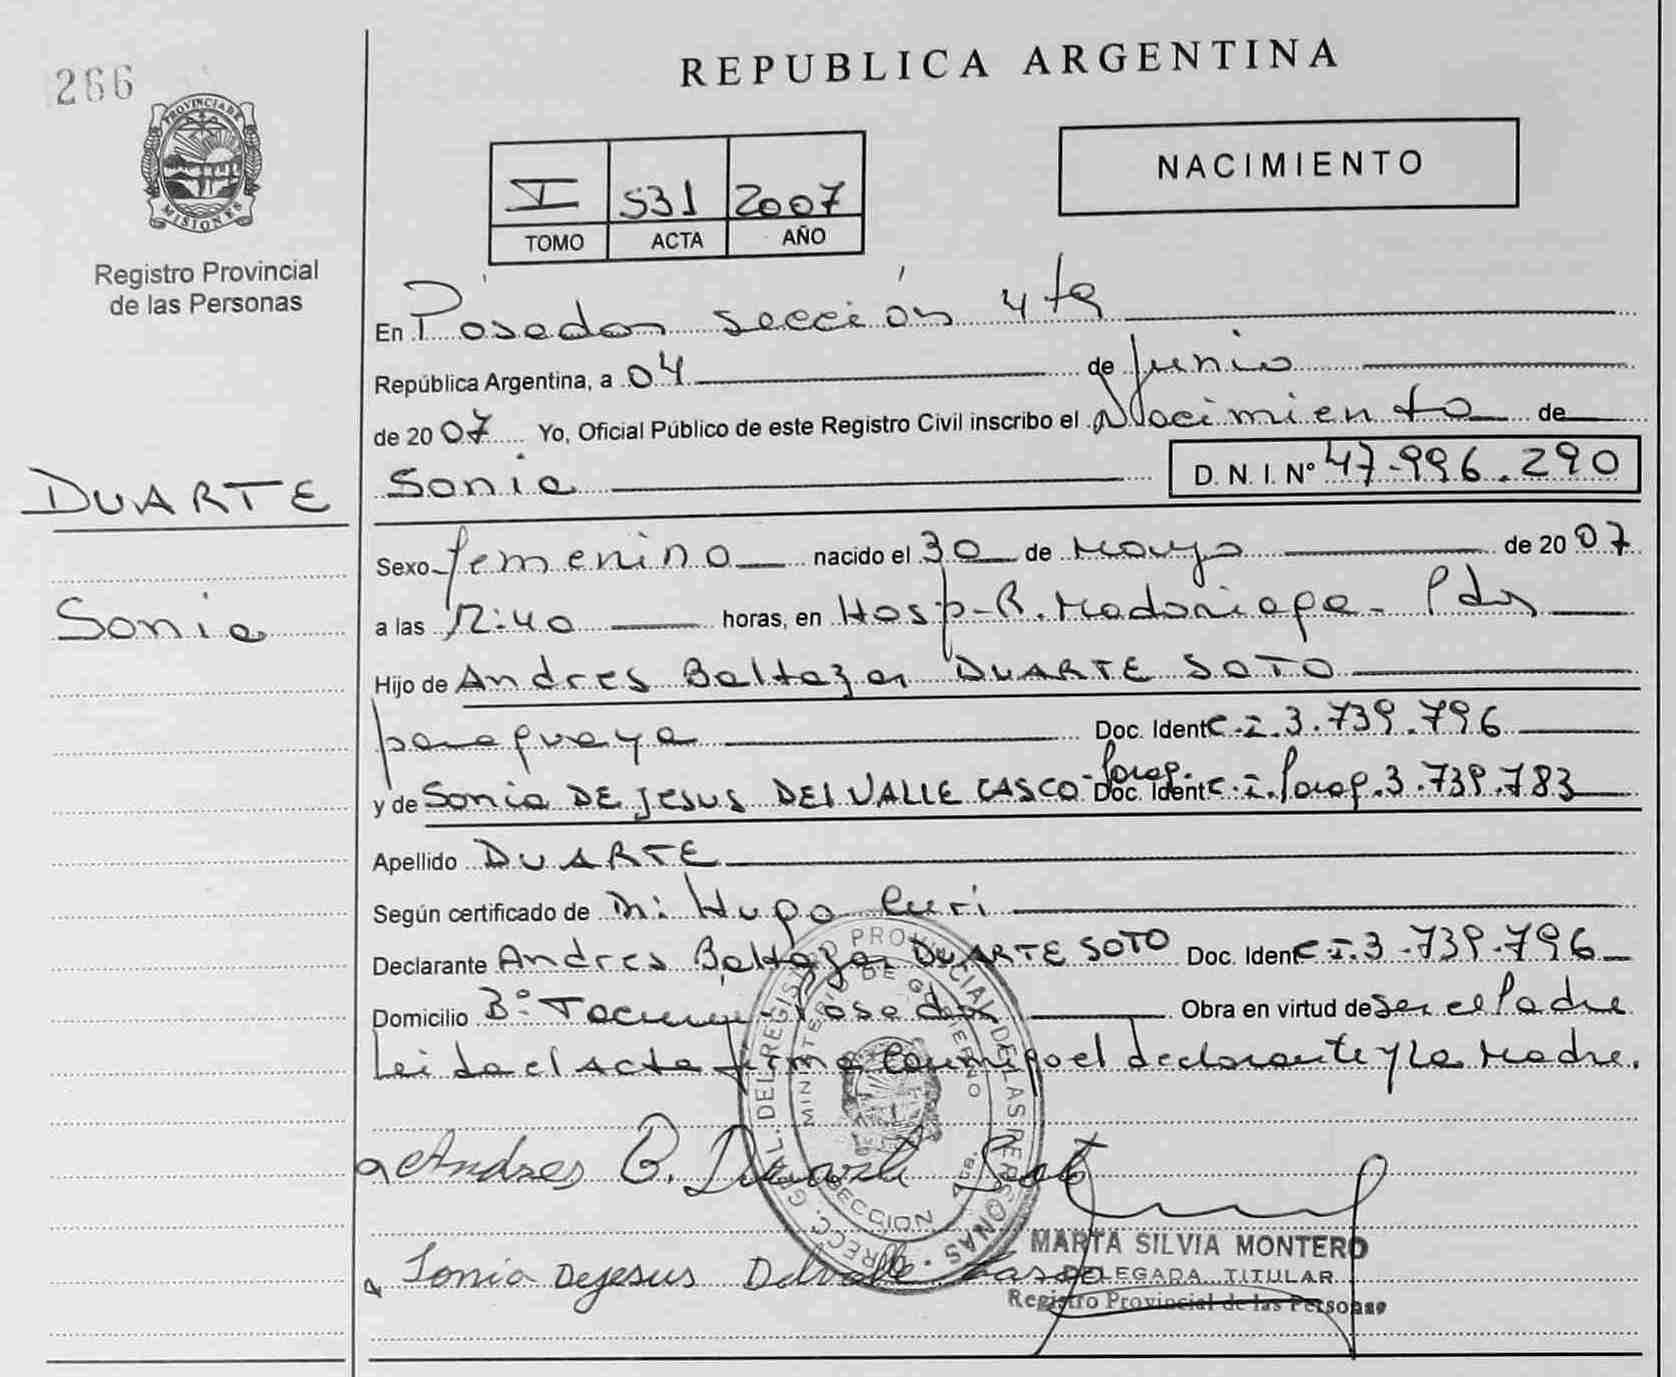 266
REPUBLICA ARGENTINA
PROVINCIA DE MISIONES
Registro Provincial
de las Personas
I 531 2007
TOMO ACTA AÑO
NACIMIENTO
En Posadas sección 4ta
República Argentina, a 04 de Junio
de 2007 Yo, Oficial Público de este Registro Civil inscribo el Nacimiento de
DUARTE
Sonia D. N. I. Nº 47.996.290
Sexo femenino nacido el 30 de Mayo de 2007
Sonia
a las 12:40 horas, en Hosp. R. Madariaga - Pdas
Hijo de Andres Baltazar DUARTE SOTO
paraguaya Doc. Ident C.I. 3.739.796
Parag.
y de Sonia DE JESUS DEL VALLE CASCO - Doc. Ident C.I. Parag. 3.739.783
Apellido DUARTE
Según certificado de Dr: Hugo Curi
Declarante Andres Baltazar DUARTE SOTO Doc. Ident C.I. 3.739.796
Domicilio Bº Posadas Obra en virtud de ser el Padre
Leida el Acta firma conmigo el declarante y la Madre.
DIRECC. GRAL. DEL REGISTRO PROVINCIAL DE LAS PERSONAS
MINISTERIO DE GOBIERNO
SECCION 4ta.
Andres B. Duarte Soto
MARTA SILVIA MONTERO
Sonia Dejesus Delvalle Casco
DELEGADA TITULAR
Registro Provincial de las Personas